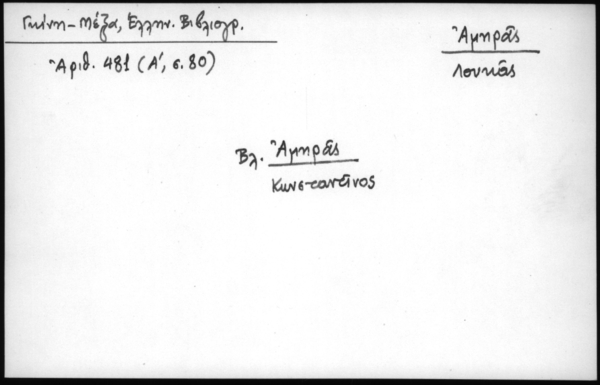 Γκίνη-Μέξα, Ἑλλην. Βιβλιογρ.
Ἀριθ. 481 (Α΄, σ. 80)
Ἀμηρᾶς
Λουκᾶς
Βλ. Ἀμηρᾶς
Κωνσταντῖνος